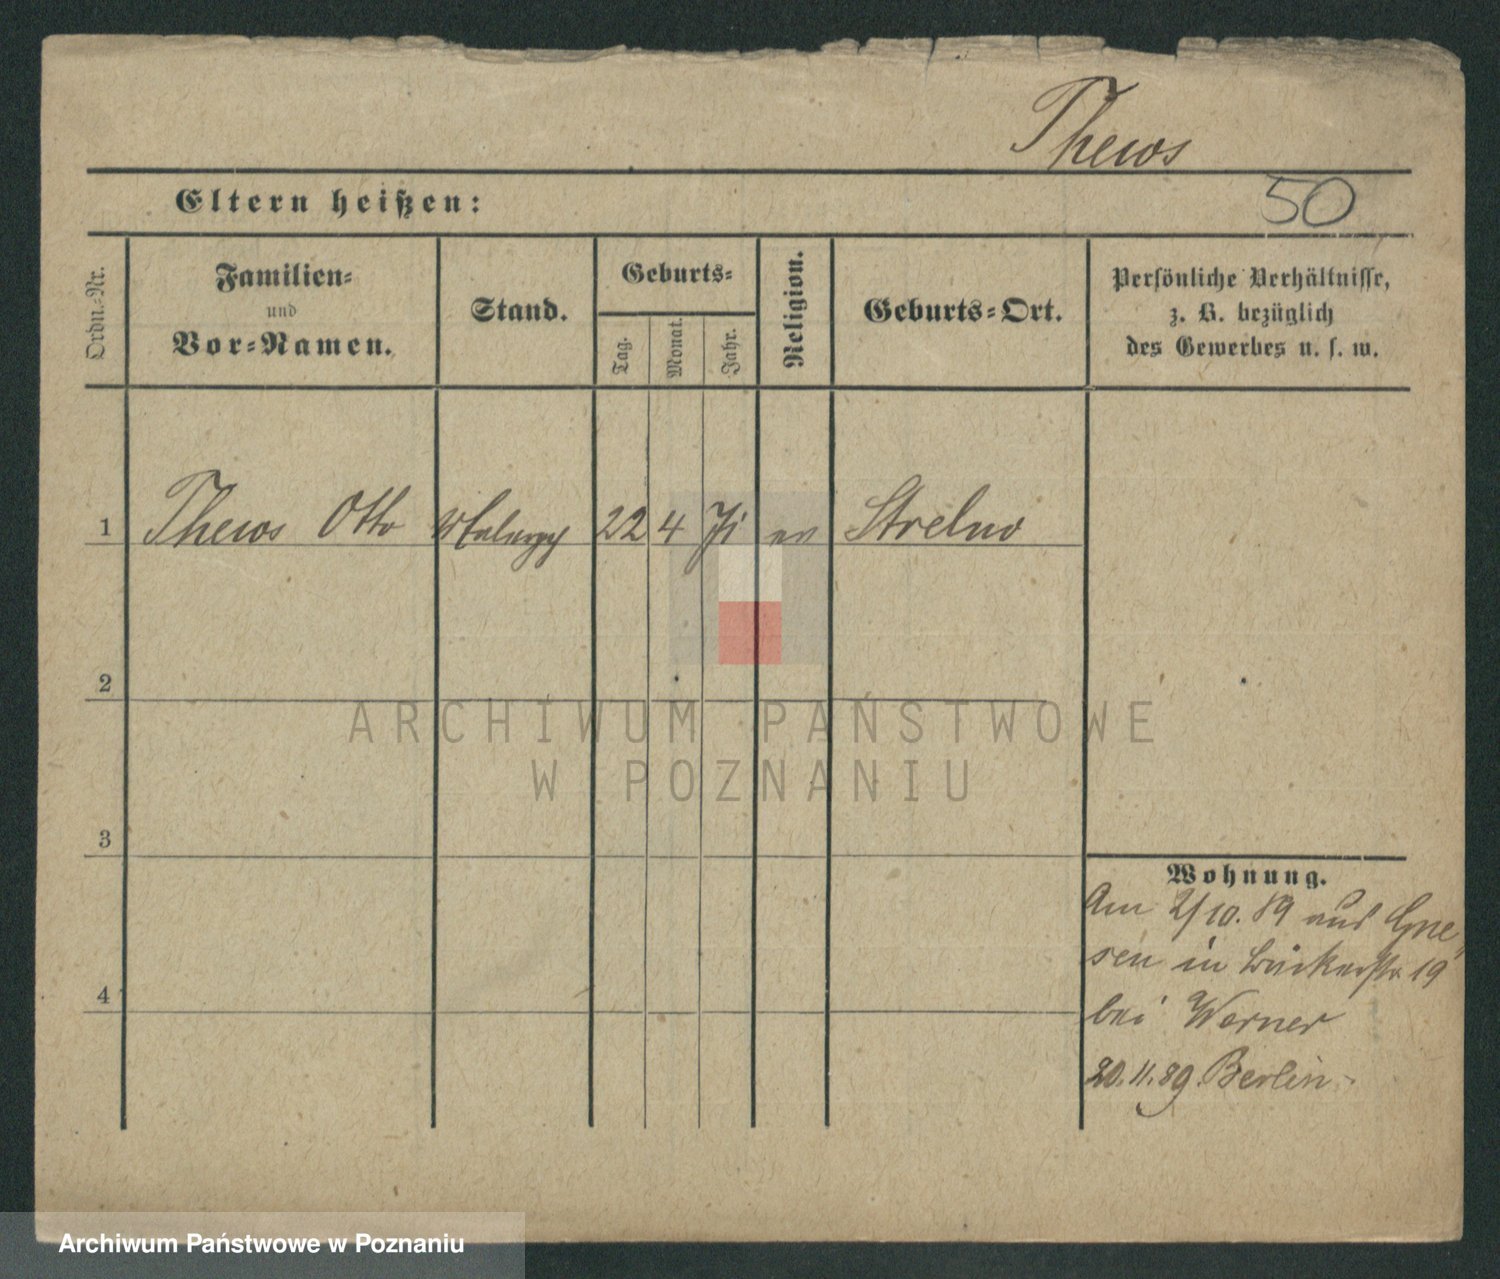 Thews
50
Eltern heißen:
Ordn.-Nr.
Familien-
und
Vor-Namen.
Stand.
Geburts-
Tag.
Monat.
Jahr.
Religion.
Geburts-Ort.
Persönliche Verhältnisse,
z. B. bezüglich
des Gewerbes u. s. w.
1 Thews Otto 22 4 ev Strelno
2
3
4
Wohnung.
Am 2/10. 89 aus Gne-
sen in 19
bei Werner
20.11.89. Berlin.
ARCHIWUM PAŃSTWOWE
W POZNANIU
Archiwum Państwowe w Poznaniu